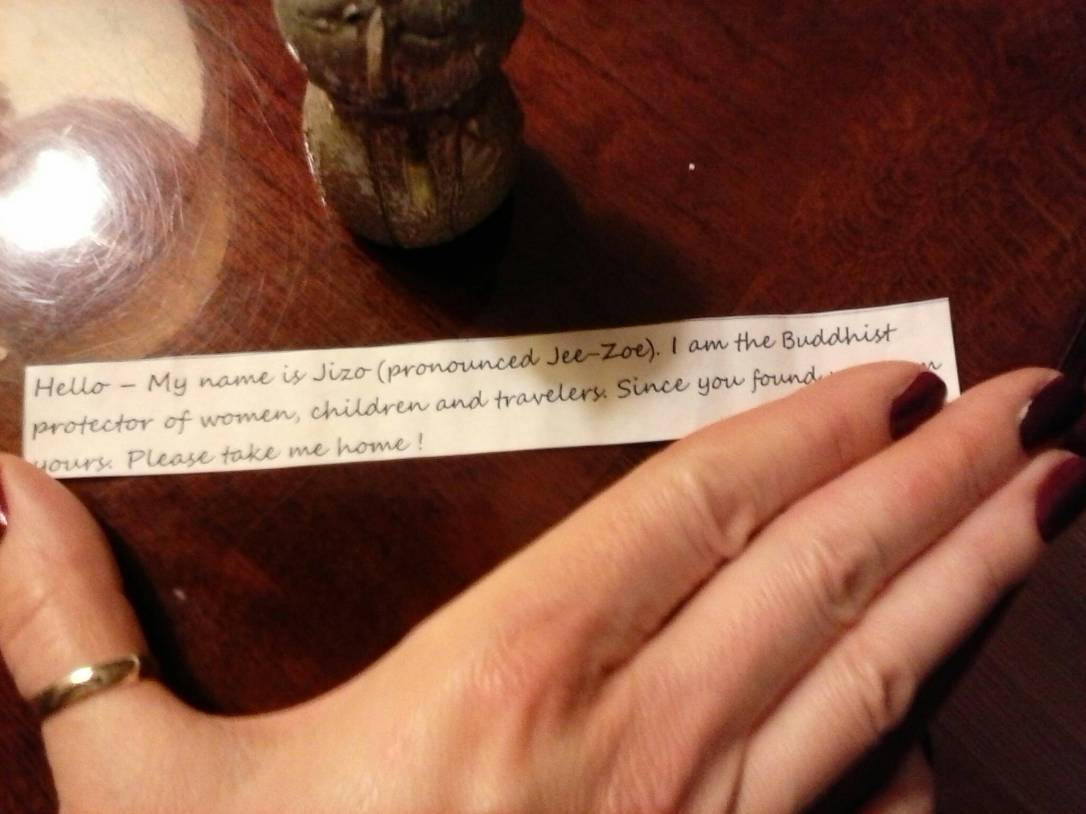 Hello – My name is Jizo (pronounced Jee-Zoe). I am the Buddhist
protector of women, children and travelers. Since you found
yours. Please take me home !